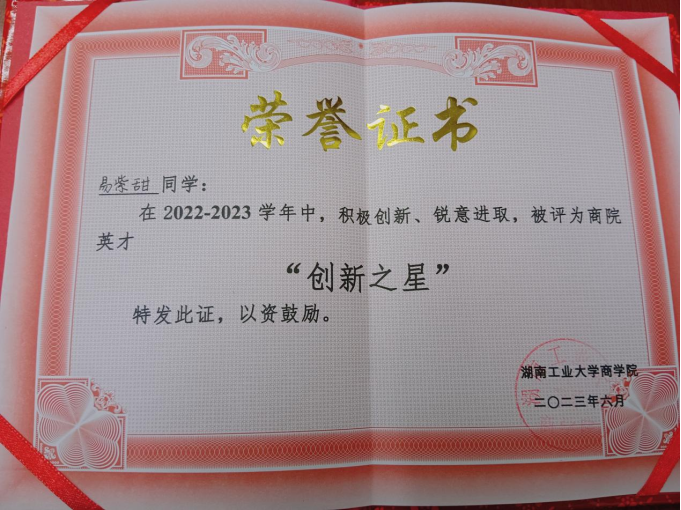 荣誉证书
易紫甜同学：
在 2022-2023 学年中，积极创新、锐意进取，被评为商院
英才
“创新之星”
特发此证，以资鼓励。
湖南工业大学商学院
二〇二三年六月